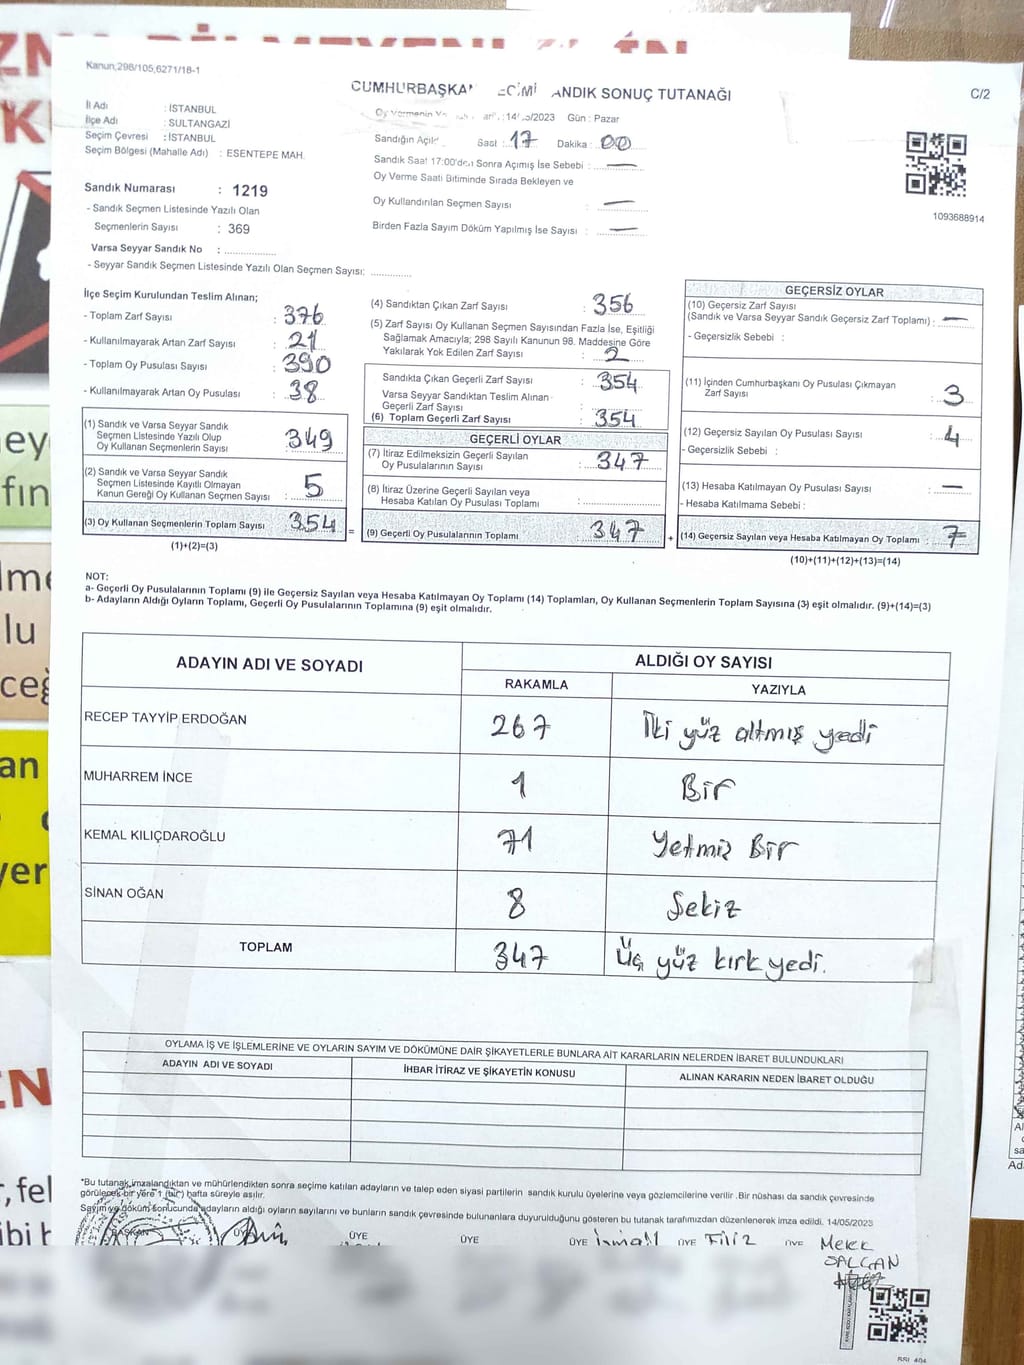 Kanun,298/105,6271/18-1
CUMHURBAŞKA
ANDIK SONUÇ TUTANAĞI
C/2
İl Adı : İSTANBUL
İlçe Adı : SULTANGAZİ
Seçim Çevresi : İSTANBUL
Seçim Bölgesi (Mahalle Adı) : ESENTEPE MAH.
Oy Vermenin
Gün : Pazar
Saat : 17 Dakika : 00
Sandık Saat 17:00'den Sonra Açımış İse Sebebi : —
Oy Verme Saati Bitiminde Sırada Bekleyen ve
Oy Kullandırılan Seçmen Sayısı : —
Birden Fazla Sayım Döküm Yapılmış İse Sayısı : —
1093688914
Sandık Numarası : 1219
- Sandık Seçmen Listesinde Yazılı Olan
Seçmenlerin Sayısı : 369
Varsa Seyyar Sandık No : ................
- Seyyar Sandık Seçmen Listesinde Yazılı Olan Seçmen Sayısı: ............
İlçe Seçim Kurulundan Teslim Alınan;
- Toplam Zarf Sayısı : 376
- Kullanılmayarak Artan Zarf Sayısı : 21
- Toplam Oy Pusulası Sayısı : 390
- Kullanılmayarak Artan Oy Pusulası : 38
(1) Sandık ve Varsa Seyyar Sandık
Seçmen Listesinde Yazılı Olup
Oy Kullanan Seçmenlerin Sayısı : 349
(2) Sandık ve Varsa Seyyar Sandık
Seçmen Listesinde Kayıtlı Olmayan
Kanun Gereği Oy Kullanan Seçmen Sayısı : 5
(3) Oy Kullanan Seçmenlerin Toplam Sayısı : 354 =
(1)+(2)=(3)
(4) Sandıktan Çıkan Zarf Sayısı : 356
(5) Zarf Sayısı Oy Kullanan Seçmen Sayısından Fazla İse, Eşitliği
Sağlamak Amacıyla; 298 Sayılı Kanunun 98. Maddesine Göre
Yakılarak Yok Edilen Zarf Sayısı : 2
Sandıkta Çıkan Geçerli Zarf Sayısı : 354
Varsa Seyyar Sandıktan Teslim Alınan
Geçerli Zarf Sayısı :
(6) Toplam Geçerli Zarf Sayısı : 354
GEÇERLİ OYLAR
(7) İtiraz Edilmeksizin Geçerli Sayılan
Oy Pusulalarının Sayısı : 347
(8) İtiraz Üzerine Geçerli Sayılan veya
Hesaba Katılan Oy Pusulası Toplamı :
(9) Geçerli Oy Pusulalarının Toplamı : 347 +
GEÇERSİZ OYLAR
(10) Geçersiz Zarf Sayısı
(Sandık ve Varsa Seyyar Sandık Geçersiz Zarf Toplamı) : —
- Geçersizlik Sebebi :
(11) İçinden Cumhurbaşkanı Oy Pusulası Çıkmayan
Zarf Sayısı : 3
(12) Geçersiz Sayılan Oy Pusulası Sayısı : 4
- Geçersizlik Sebebi :
(13) Hesaba Katılmayan Oy Pusulası Sayısı : —
- Hesaba Katılmama Sebebi :
(14) Geçersiz Sayılan veya Hesaba Katılmayan Oy Toplamı : 7
(10)+(11)+(12)+(13)=(14)
NOT:
a- Geçerli Oy Pusulalarının Toplamı (9) ile Geçersiz Sayılan veya Hesaba Katılmayan Oy Toplamı (14) Toplamları, Oy Kullanan Seçmenlerin Toplam Sayısına (3) eşit olmalıdır. (9)+(14)=(3)
b- Adayların Aldığı Oyların Toplamı, Geçerli Oy Pusulalarının Toplamına (9) eşit olmalıdır.
ADAYIN ADI VE SOYADI
ALDIĞI OY SAYISI
RAKAMLA YAZIYLA
RECEP TAYYİP ERDOĞAN 267 İki yüz altmış yedi
MUHARREM İNCE 1 Bir
KEMAL KILIÇDAROĞLU 71 Yetmiş Bir
SİNAN OĞAN 8 Sekiz
TOPLAM 347 Üç yüz kırk yedi.
OYLAMA İŞ VE İŞLEMLERİNE VE OYLARIN SAYIM VE DÖKÜMÜNE DAİR ŞİKAYETLERLE BUNLARA AİT KARARLARIN NELERDEN İBARET BULUNDUKLARI
ADAYIN ADI VE SOYADI İHBAR İTİRAZ VE ŞİKAYETİN KONUSU ALINAN KARARIN NEDEN İBARET OLDUĞU
*Bu tutanak imzalandıktan ve mühürlendikten sonra seçime katılan adayların ve talep eden siyasi partilerin sandık kurulu üyelerine veya gözlemcilerine verilir .Bir nüshası da sandık çevresinde
görülecek bir yere 1 (bir) hafta süreyle asılır.
Sayım ve döküm sonucunda adayların aldığı oyların sayılarını ve bunların sandık çevresinde bulunanlara duyurulduğunu gösteren bu tutanak tarafımızdan düzenlenerek imza edildi. 14/05/2023
BAŞKAN ÜYE ÜYE ÜYE İsmail ÜYE Filiz ÜYE Melek
SALCAN